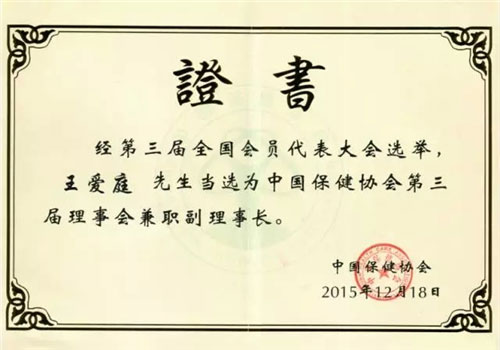 證書
经第三届全国会员代表大会选举，
王爱庭 先生当选为中国保健协会第三
届理事会兼职副理事长。
中国保健协会
2015年12月18日